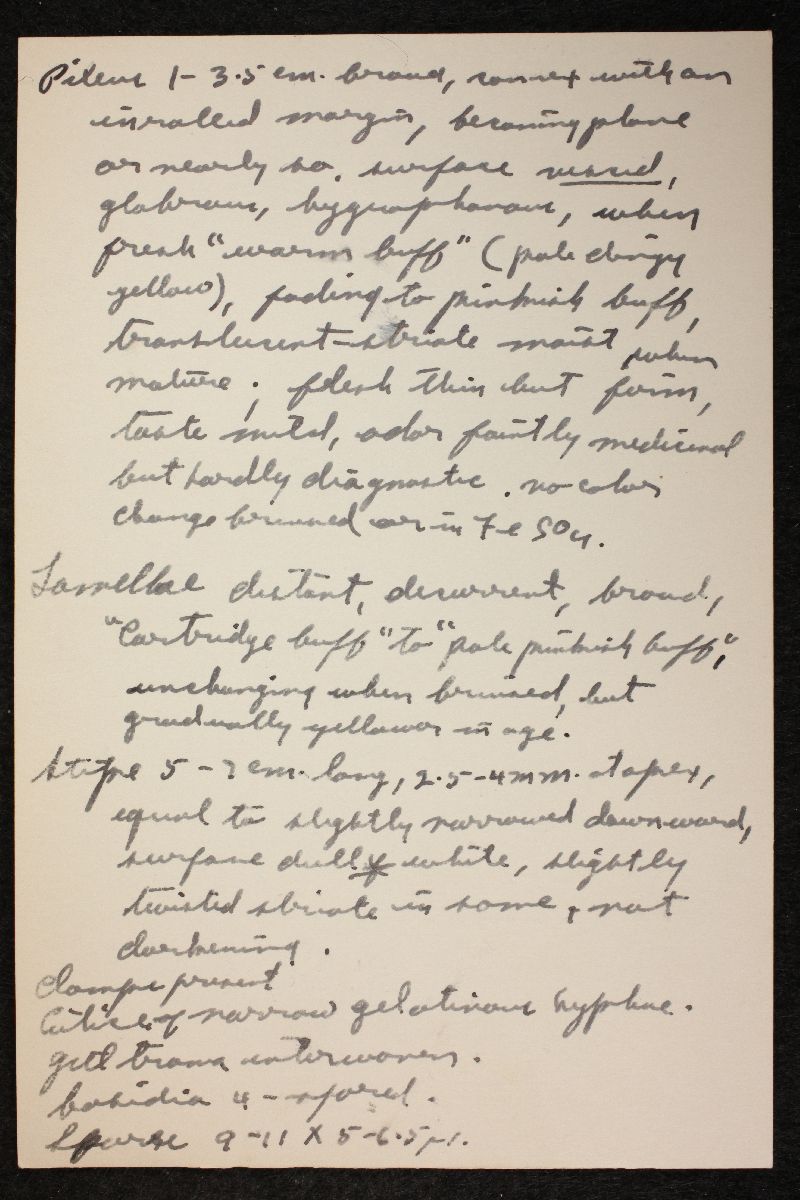 Pileus 1-3.5 cm. broad, convex with an
inrolled margin, becoming plane
or nearly so. surface viscid,
glabrous, hygrophanous, when
fresh "warm buff" (pale dingy
yellow), fading to pinkish buff,
translucent-striate moist when
mature; flesh thin but firm,
taste mild, odor faintly medicinal
but hardly diagnostic. no color
change bruised or in FeSO4.
Lamellae distant, decurrent, broad,
"Cartridge buff" to "pale pinkish buff",
unchanging when bruised, but
gradually yellower in age.
Stipe 5-7 cm. long, 2.5-4 mm. at apex,
equal to slightly narrowed downward,
surface dull white, slightly
twisted striate in some, not
darkening.
Clamps present
Cutis of narrow gelatinous hyphae.
gill trama interwoven.
basidia 4-spored.
Spores 9-11 X 5-6.5 µ.